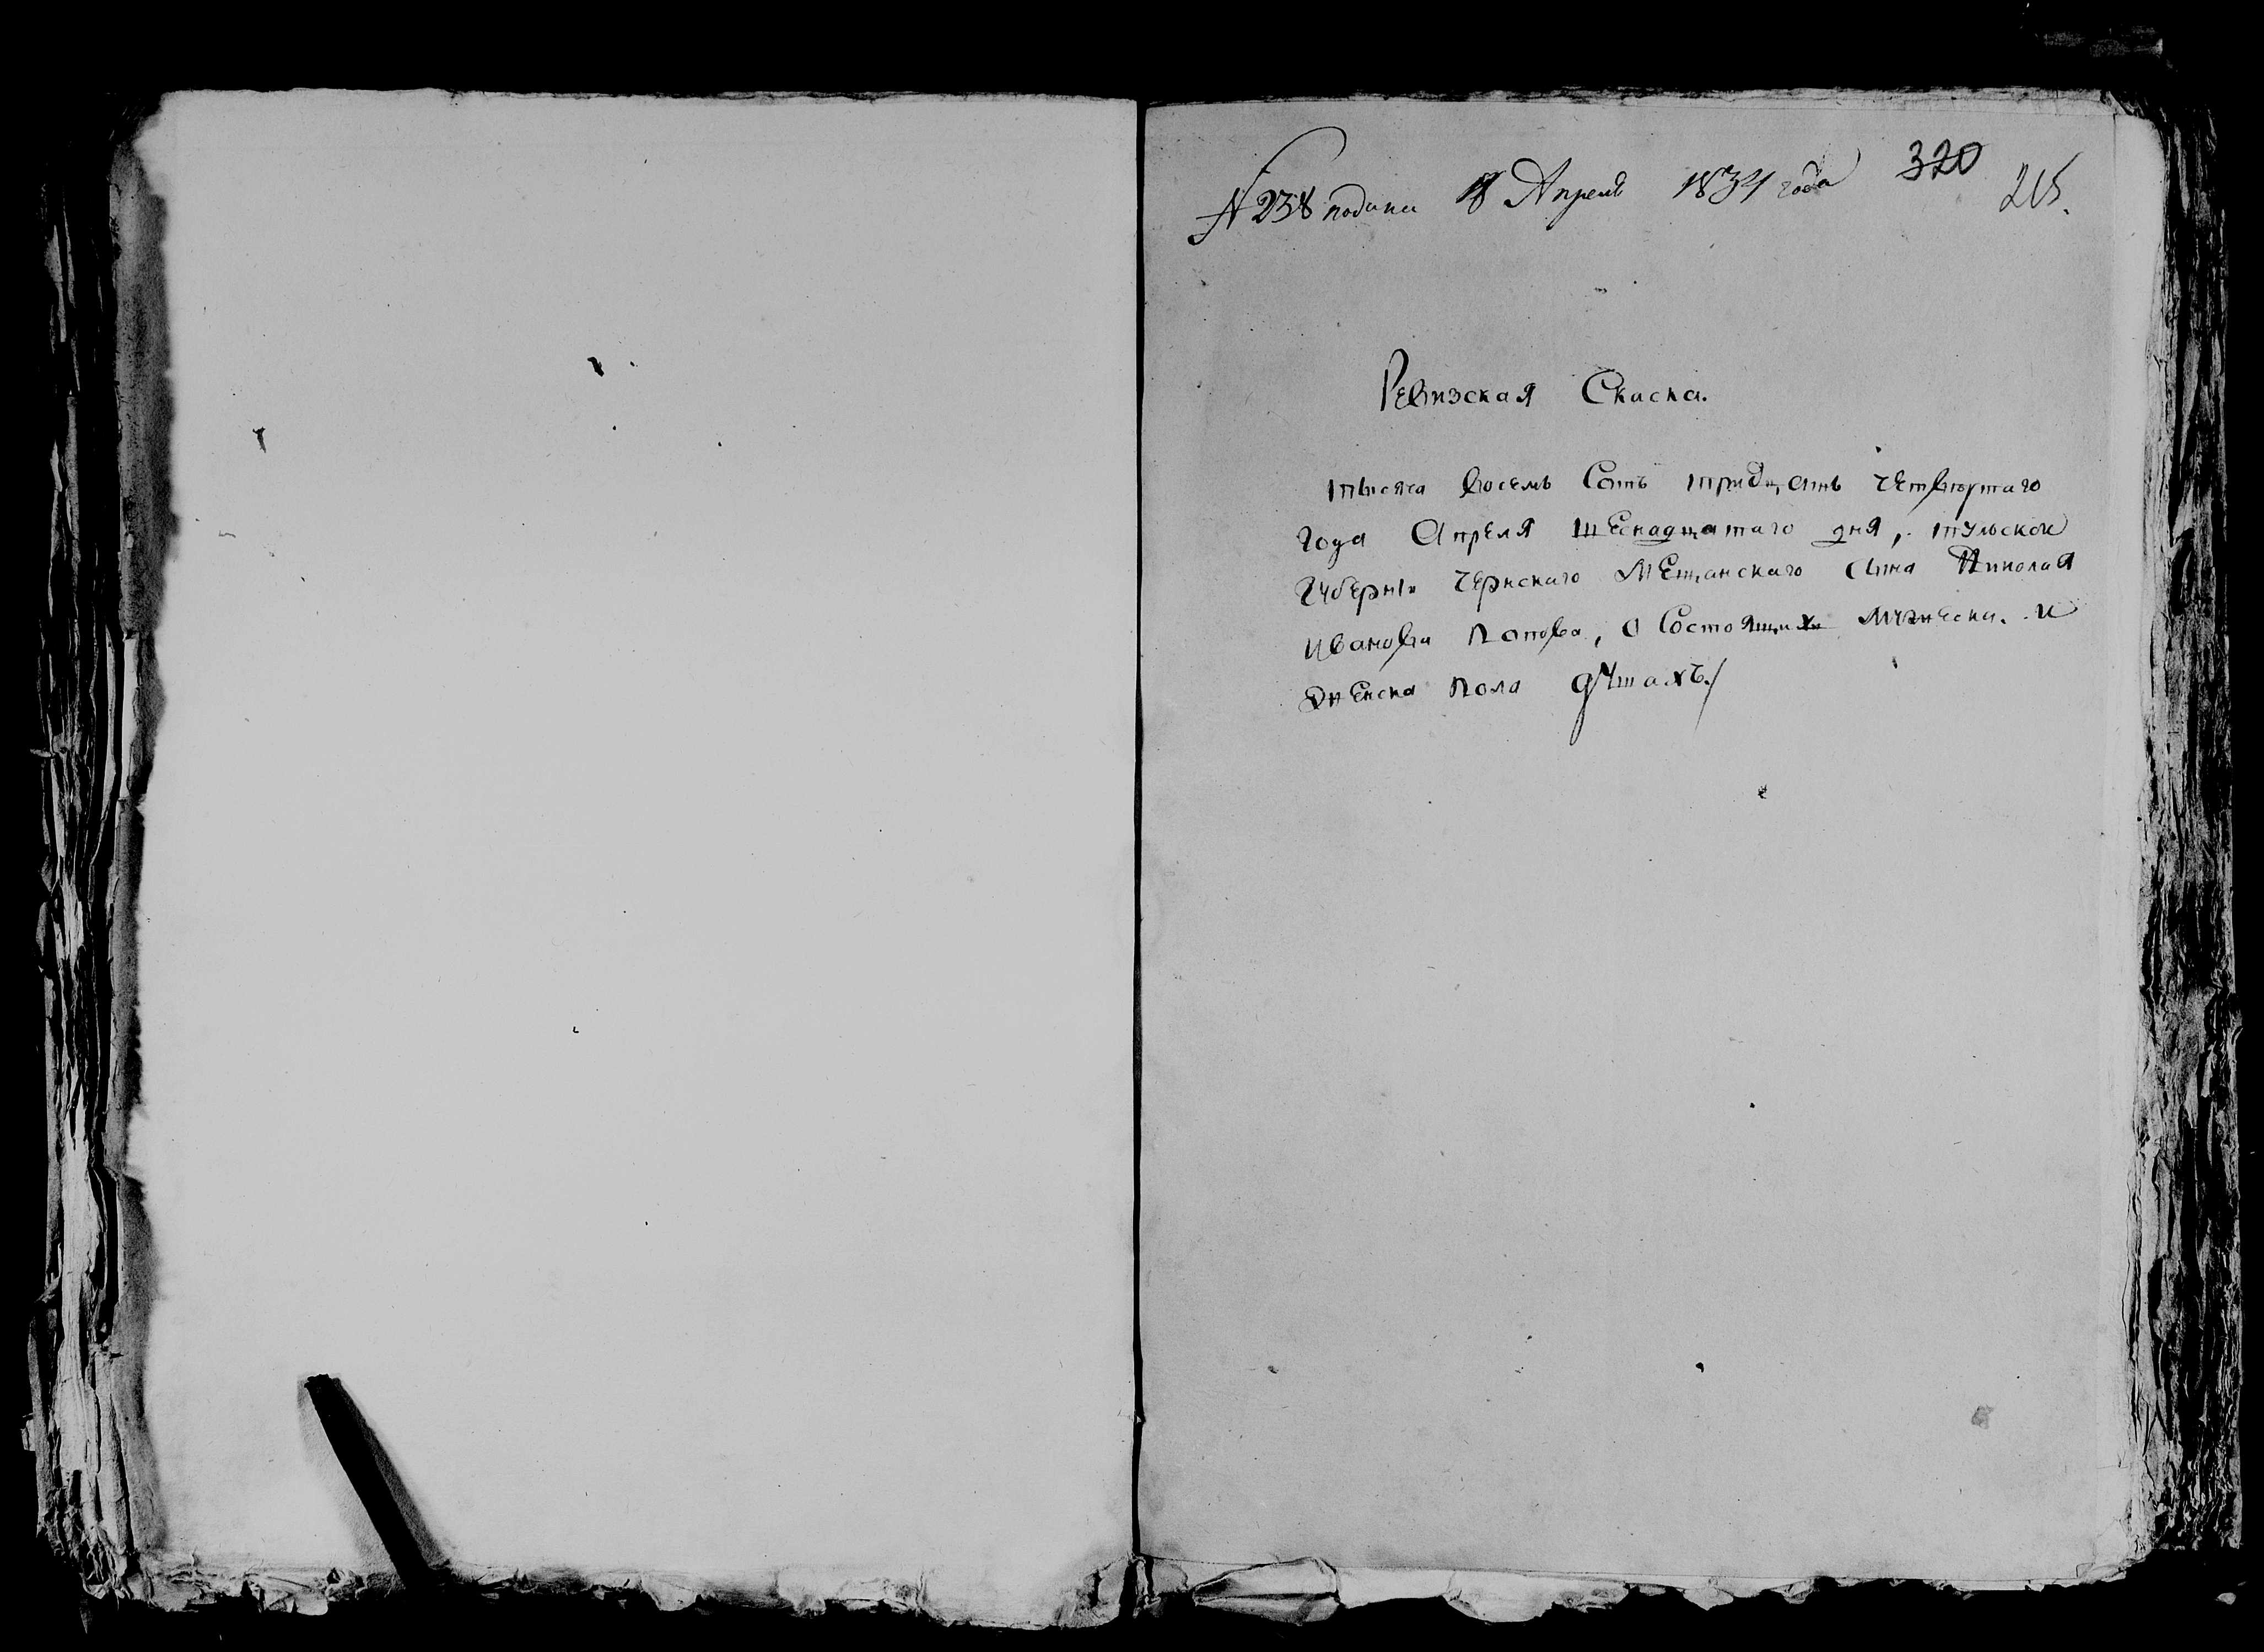 № 238 подана 18 Апреля 1834 года 320 215.
Ревизская Скаска.
тысяча восемь Сотъ тридцать четвертаго
года Апреля шеснадцатаго дня, тульской
Губерніи Чернскаго Мещанскаго сына Николая
Иванова Попова, о Состоящихъ Мужеска. и
женска пола душахъ./